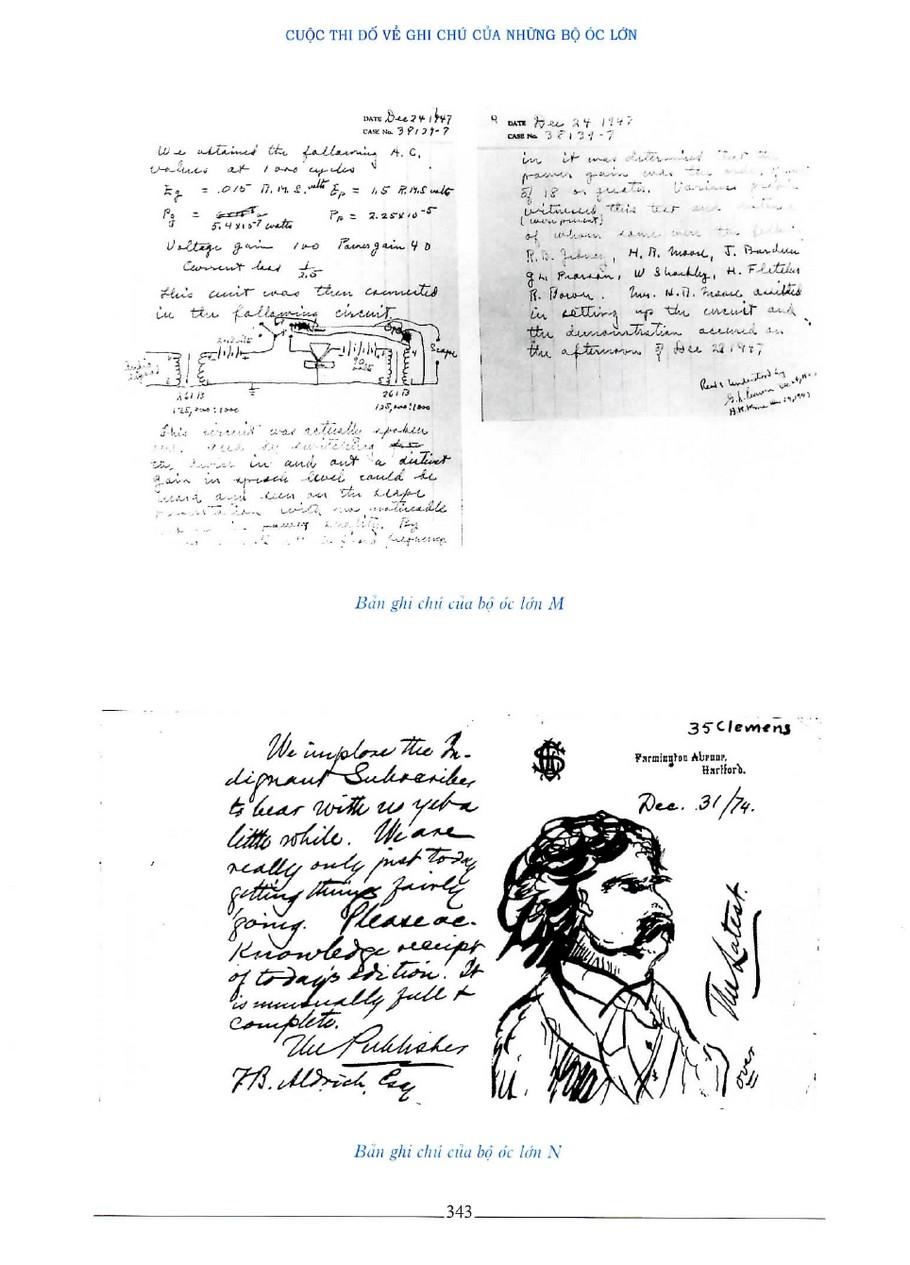 CUỘC THI ĐỐ VỀ GHI CHÚ CỦA NHỮNG BỘ ÓC LỚN
DATE Dec 24 1947
CASE No. 38139-7
We obtained the following A.C.
values at 1000 cycles
Eg = .015 R.M.S. volts Ep = 1.5 R.M.S volts
Pg = 5.4x10-7 watts Pp = 2.25x10-5
Voltage gain 100 Power gain 40
Current loss 1/2.5
This unit was then connected
in the following circuit.
Scope
261B
125,000:1000
261B
125,000:1000
This circuit was actually spoken
over and by switching
the device in and out a distinct
gain in speech level could be
heard and seen on the scope
presentation with no noticeable
quality. By
frequency
9 DATE Dec 24 1947
CASE No. 38139-7
in it was determined that the
power gain was the order of
of 18 or greater. Various people
witnessed this test and
of whom some were the
R.B. Gibney, H.R. Moore, J. Bardeen
G.L. Pearson, W Shockley, H. Fletcher
R. Bown. Mr. H.R. Moore assisted
in setting up the circuit and
the demonstration occurred on
the afternoon of Dec 23 1947
Read & Understood by
Bản ghi chú của bộ óc lớn M
We implore the In-
dignant Subscriber
to bear with us yet a
little while. We are
really only just today
getting things fairly
going. Please ac-
knowledge receipt
of today's edition. It
is unusually full &
complete.
The Publisher
T.B. Aldrich, Esq
35 Clemens
Farmington Avenue,
Hartford.
Dec. 31/74.
The Latest.
over
Bản ghi chú của bộ óc lớn N
343